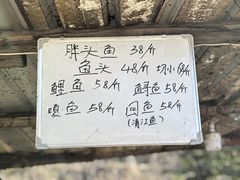 胖头鱼 38/斤
鱼头 48/斤 切小份/斤
鲤鱼 58/斤 鲟鱼 58/斤
鱼 58/斤 回鱼 58/斤
(清江鱼)